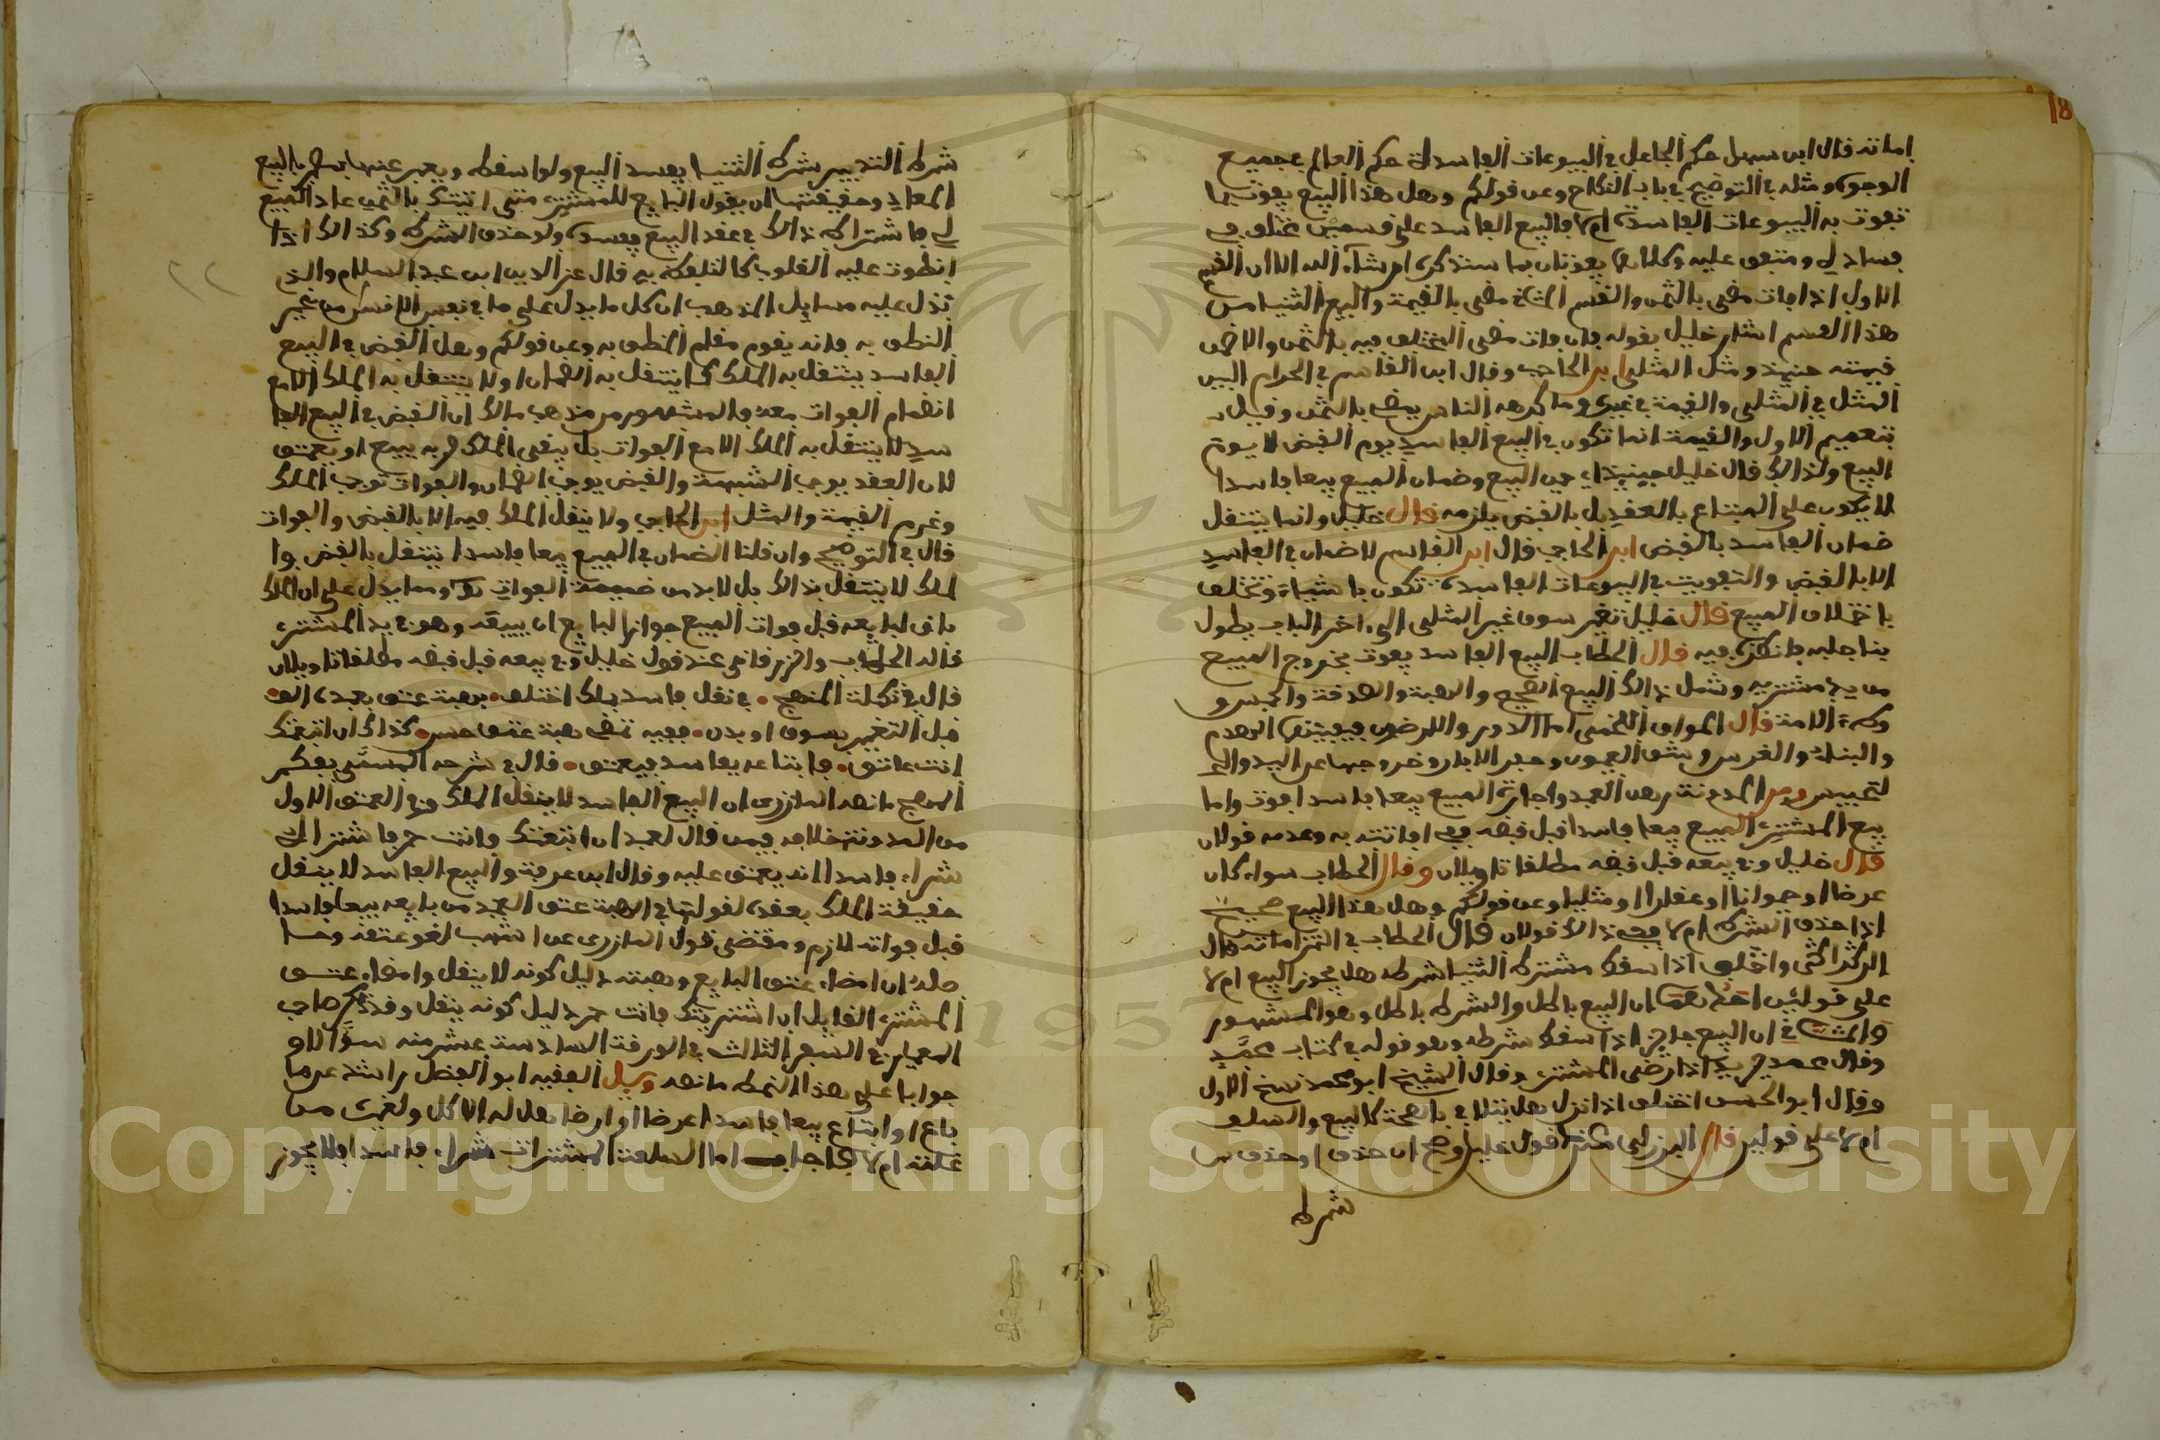 18
امانه قال ابن سهل حكم الجاهل في البيوعات الفاسدة حكم العالم في جميع
الوجوه ومثله في التوضيح في باب النكاح وعن قولكم وهل هذا البيع يفوت بما
تفوت به البيوعات الفاسدة ام لا فالبيع الفاسد على قسمين مختلف في
فساده ومتفق عليه وكلاهما يفوتان بما سنذكره ان شاء الله الا ان القسم
الاول اذا فات مضى بالثمن والقسم الثاني مضى بالقيمة والبيع الثنيا من
هذا القسم اشار خليل بقوله فان فات مضى المختلف فيه بالثمن والا ضمن
قيمته حينئذ ومثل المثلي ابن الحاجب وقال ابن القاسم في الحرام البين
المثل في المثلي والقيمة في غيره وما كرهه الناس يمضي بالثمن وقيل
بتعميم الاول والقيمة انما تكون في البيع الفاسد يوم القبض لا يوم
البيع ولذالك قال خليل حينئذ اي حين البيع وضمان المبيع بيعا فاسدا
لا يكون على المبتاع بالعقد بل بالقبض يلزمه قال خليل وانما ينتقل
ضمان الفاسد بالقبض ابن الحاجب قال ابن القاسم لا ضمان في الفاسد
الا بالقبض والتفويت في البيوعات الفاسدة تكون باشياء وتختلف
باختلاف المبيع قال خليل بتغير سوق غير المثلي الى اخر الباب يطول
بنا جلبه فانظره فيه قال الحطاب البيع الفاسد يفوت بخروج المبيع
من يد مشتريه وشمل ذالك البيع الصحيح والهبة والصدقة والحبس و
وطء الامة قال المواق اللخمي اما الدور والارضون فيفيتها الهدم
والبناء والغرس وشق العيون وحفر الابار وخروجها عن اليد والبيع
لتحبيس ومن المدونة رهن العبد واجارة المبيع بيعا فاسدا فوت واما
بيع المشتري المبيع بيعا فاسدا قبل قبضه ففي افاتته به وعدمه قولان
قال خليل وفي بيعه قبل قبضه مطلقا تاويلان وقال الحطاب سواء كان
عرضا او حيوانا او عقارا او مثليا وعن قولكم وهل هذا البيع صحيح
اذا حذف الشرط ام لا ففي ذالك قولان قال الحطاب في التزاماته قال
الركراكي واختلف اذا اسقط مشترط الثنيا شرطه هل يجوز البيع ام لا
على قولين احدهما ان البيع باطل والشرط باطل وهو المشهور
والثاني ان البيع جائز اذا اسقط شرطه وهو قوله في كتاب محمد
وقال محمد يريد اذا رضي المشتري وقال الشيخ ابو محمد نسخ الاول
وقال ابو الحسن اختلف اذا نزل هل يتلافى بالصحة كالبيع والسلف
ام لا على قولين قال البرزلي عند قول خليل وصح ان حذف او حذف
شرط
شرط التدبير شرط الثنيا يفسد البيع ولو اسقطه ويعبر عنها بالبيع
المعاد وحقيقتها ان يقول البايع للمشتري متى اتيتك بالثمن عاد المبيع
لي فاشتراط ذالك في عقد البيع يفسده ولو حذف الشرط وكذالك اذا
انطوت عليه القلوب كالتلفظ به قال عز الدين ابن عبد السلام والذي
تدل عليه مسايل المذهب ان كل ما يدل على ما في نفس الانسان من غير
النطق به فانه يقوم مقام النطق به وعن قولكم وهل القبض في البيع
الفاسد ينتقل به الملك كما ينتقل به الضمان او لا ينتقل به الملك الا مع
انضمام الفوات معه فالمشهور من مذهب مالك ان القبض في البيع الفا
سد لا ينتقل به الملك الا مع الفوات بل يبقى الملك لربه يبيع او يعتق
لان العقد يوجب الشبهة والقبض يوجب الضمان والفوات توجب الملك
وغرم القيمة والمثل ابن الحاجب ولا ينقل الملك فيه الا بالقبض والفوات
قال في التوضيح وان قلنا الضمان في المبيع بيعا فاسدا ينتقل بالقبض فا
لملك لا ينتقل بذالك بل لا بد من ضميمة الفوات ومما يدل على ان الملك
باق لبايعه قبل فوات المبيع جواز البايع ان يبيعه وهو في يد المشتري
قاله الحطاب والزرقاني عند قول خليل وفي بيعه قبل قبضه مطلقا تاويلان
قال في تكملة المنهج في نقل فاسد ملك اختلف بهبة عتق بعيده الف
قبل التغير بسوق او بدن ففيه تمضى هبة عتق حسن كذاك ان ابتعتك
انت عاتق فابتاعه بفاسد فيعتق قال في شرحه المسمى بفكر
المنهج ما نصه المازري ان البيع الفاسد لا ينقل الملك وفي العتق الاول
من المدونة خلافه فيمن قال لعبد ان ابتعتك فانت حر فاشتراه
شراء فاسدا انه يعتق عليه وقال ابن عرفة والبيع الفاسد لا ينقل
حقيقة الملك بعقده لقولها في الهبة عتق العبد من بايعه بيعا فاسدا
قبل فواته لازم ومقتضى قول المازري عن اشهب لغو عتقه وحا
صله ان امضاء عتق البايع وهبته دليل كونه لا ينقل وامضاء عتق
المشتري القايل ان اشتريتك فانت حر دليل كونه ينقل وقد ذكر صاحب
المعيار في السفر الثالث في الورقة السادسة عشر منه سؤالا و
جوابا على هذا النمط ما نصه وسيل الفقيه ابو الفضل راشد عن من
باع او ابتاع بيعا فاسدا عرضا او ارضا هل له الاكل ولغيره من
غلته ام لا فاجاب اما السلعة المشترات شراء فاسدا فلا يجوز
Copyright © King Saud University
1957